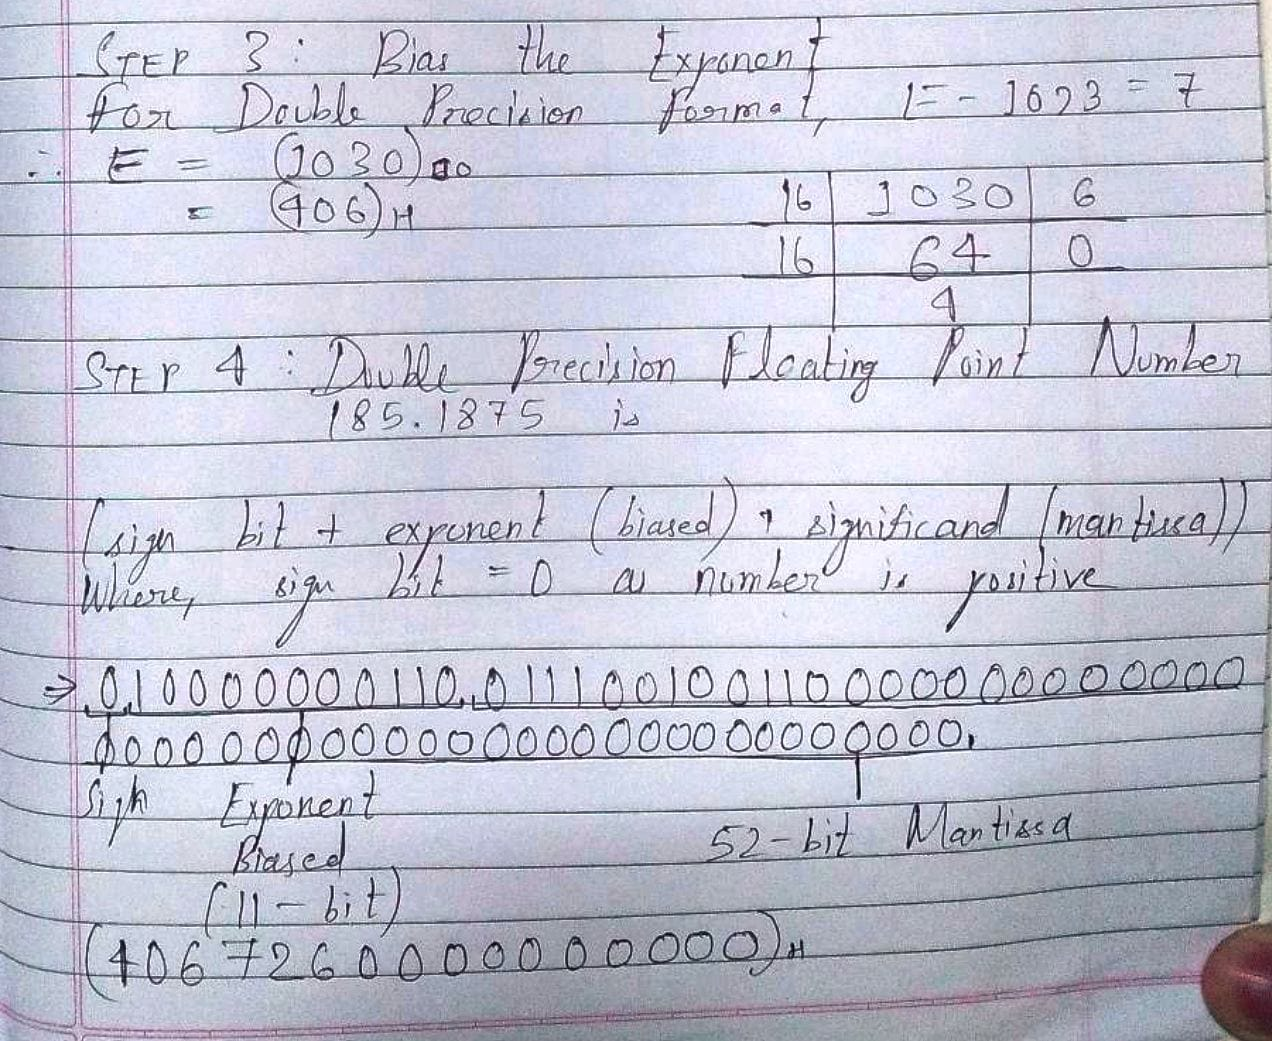 STEP 3 : Bias the Exponent
for Double Precision format, E - 1023 = 7
∴ E = (1030)10
= (406)H
16 | 1030 | 6
16 | 64 | 0
4
STEP 4 : Double Precision Floating Point Number
185.1875 is
(sign bit + exponent (biased) + significand (mantissa))
Where, sign bit = 0 as number is positive
⇒ 0,10000000110,0111001001100000000000000
0000000000000000000000000000,
Sign Exponent
Biased
(11-bit)
52-bit Mantissa
(4067260000000000)H